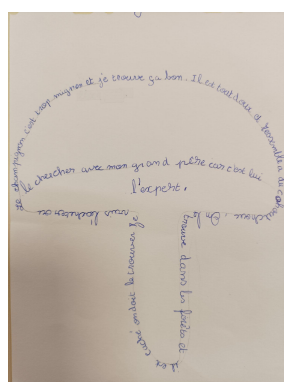 Le champignon c'est trop mignon et je trouve ça bon. Il est tout doux et ressemble à du caoutchouc. On le
trouve dans les forêts et
il est cuisiné on doit le trouver
le chercher avec mon grand père car c'est lui
l'expert.